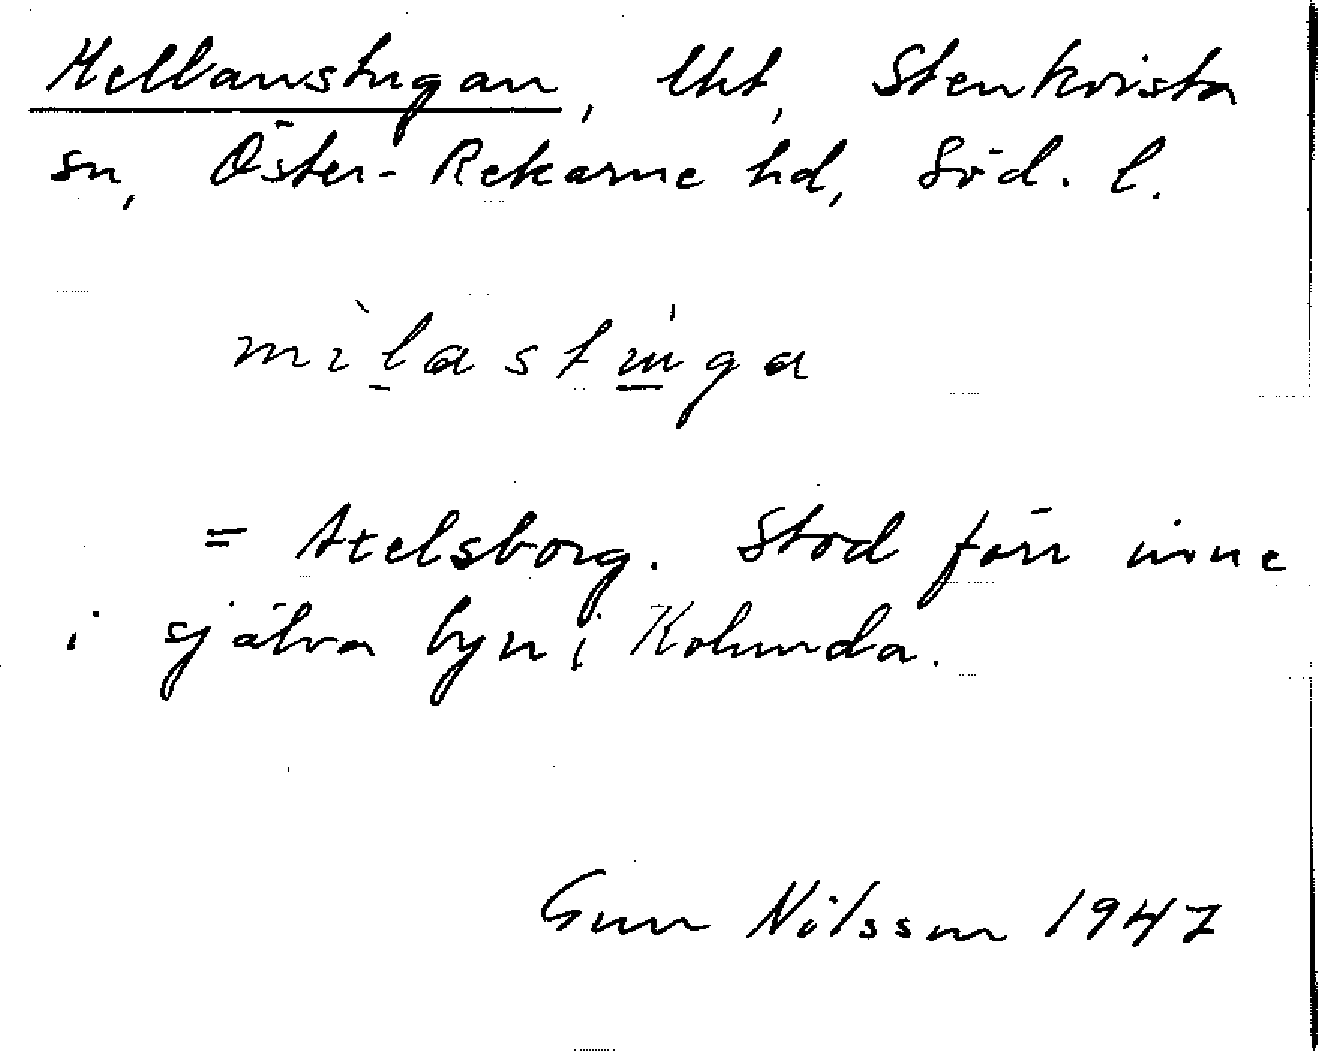 Mellanstugan, lht, Stenkvista
sn, Öster-Rekarne hd, Söd. l.
= Axelsborg. Stod förr inne
i själva byn i Kolunda.
Gun Nilsson 1947